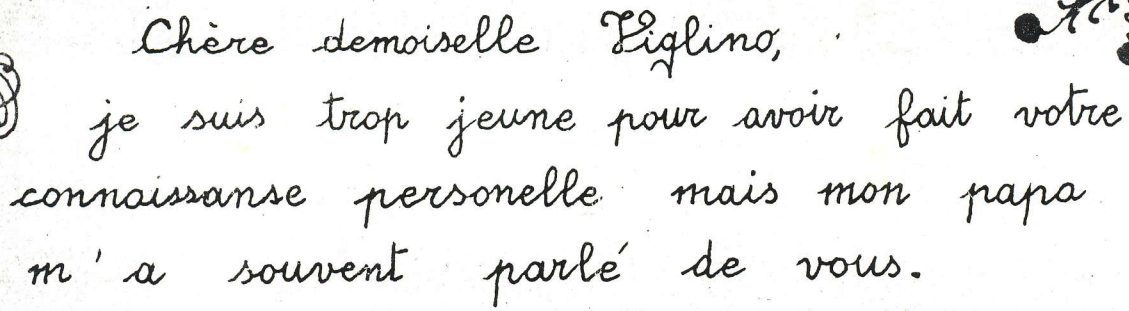 Chère demoiselle Viglino,
je suis trop jeune pour avoir fait votre
connaissanse personelle mais mon papa
m'a souvent parlé de vous.